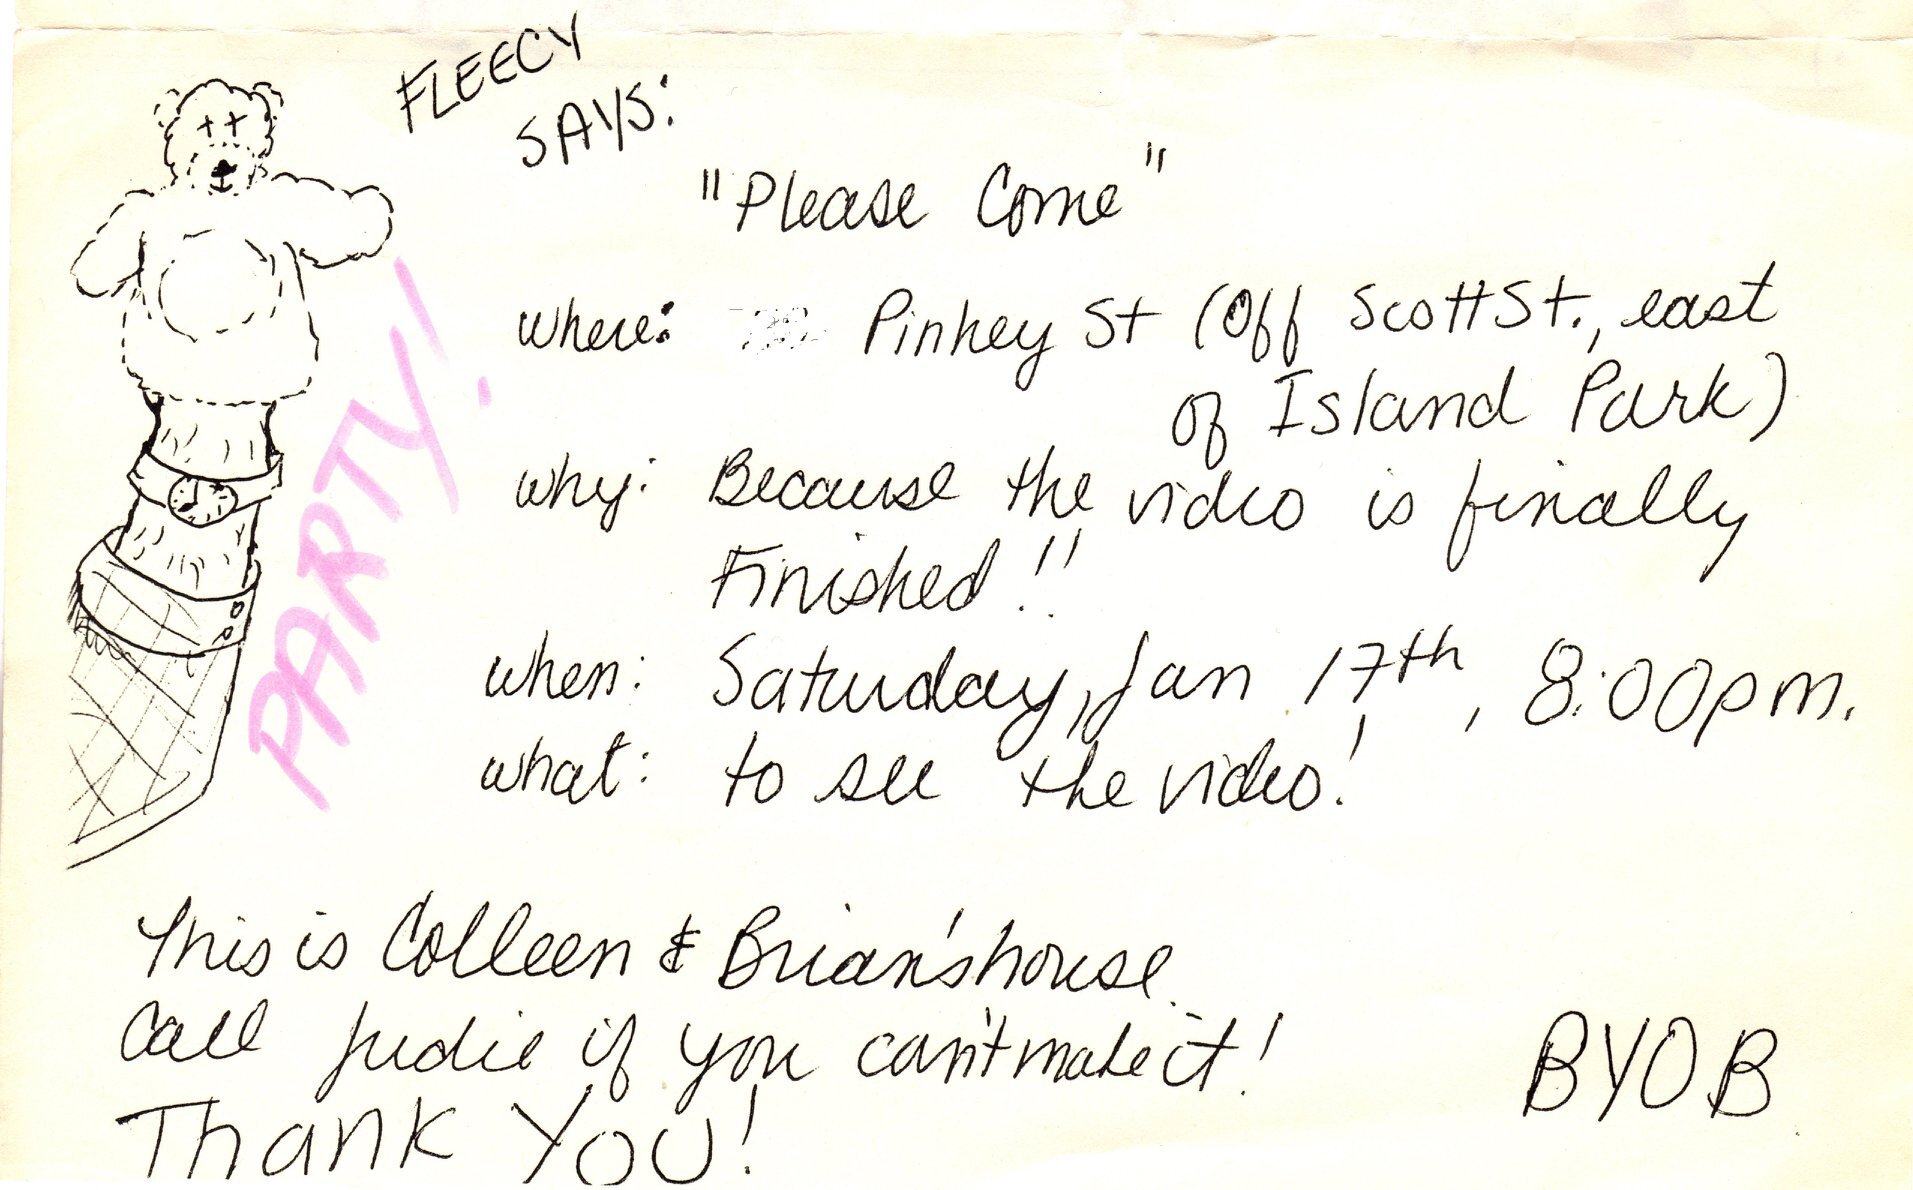 FLEECY
SAYS:
"Please Come"
PARTY!
where: Pinkey St (Off Scott St., east
of Island Park)
why: Because the video is finally
Finished!!
when: Saturday, Jan 17th, 8:00pm.
what: to see the video!
This is Colleen & Brian's house.
Call Judie if you can't make it!
BYOB
Thank You!